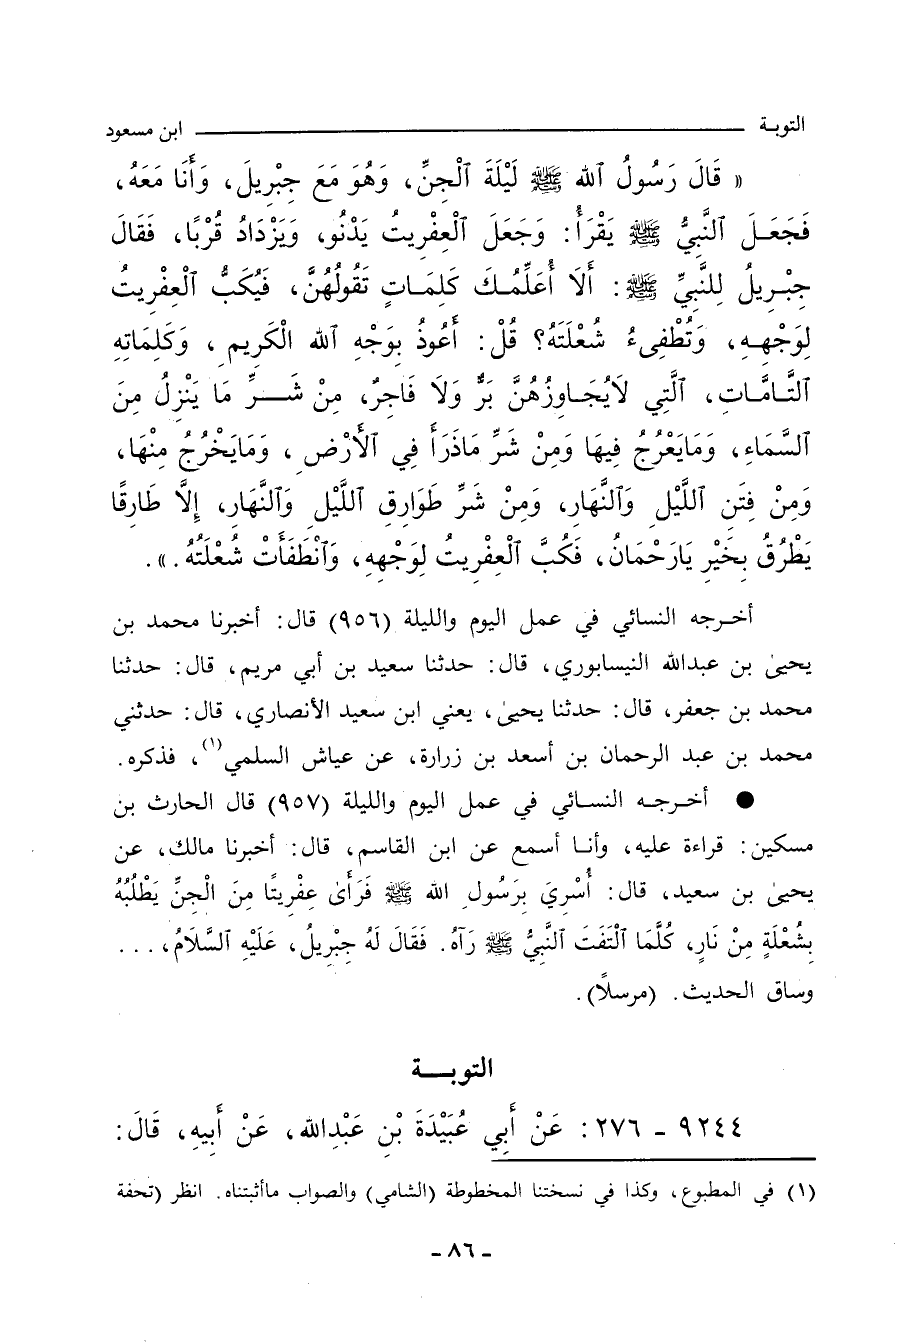 التوبـة ــــــــــ ابن مسعود
« قَالَ رَسُولُ اللهِ ﷺ لَيْلَةَ الْجِنِّ، وَهُوَ مَعَ جِبْرِيلَ، وَأَنَا مَعَهُ،
فَجَعَلَ النَّبِيُّ ﷺ يَقْرَأُ: وَجَعَلَ الْعِفْرِيتُ يَدْنُو، وَيَزْدَادُ قُرْبًا، فَقَالَ
جِبْرِيلُ لِلنَّبِيِّ ﷺ: أَلَا أُعَلِّمُكَ كَلِمَاتٍ تَقُولُهُنَّ، فَيُكَبُّ الْعِفْرِيتُ
لِوَجْهِهِ، وَتُطْفِىءُ شُعْلَتَهُ؟ قُلْ: أَعُوذُ بِوَجْهِ اللهِ الْكَرِيمِ، وَكَلِمَاتِهِ
التَّامَّاتِ، الَّتِي لَايُجَاوِزُهُنَّ بَرٌّ وَلَا فَاجِرٌ، مِنْ شَرِّ مَا يَنْزِلُ مِنَ
السَّمَاءِ، وَمَايَعْرُجُ فِيهَا وَمِنْ شَرِّ مَاذَرَأَ فِي الْأَرْضِ، وَمَايَخْرُجُ مِنْهَا،
وَمِنْ فِتَنِ اللَّيْلِ وَالنَّهَارِ، وَمِنْ شَرِّ طَوَارِقِ اللَّيْلِ وَالنَّهَارِ، إِلَّا طَارِقًا
يَطْرُقُ بِخَيْرٍ يَارَحْمَانُ، فَكُبَّ الْعِفْرِيتُ لِوَجْهِهِ، وَانْطَفَأَتْ شُعْلَتُهُ.».
أخرجه النسائي في عمل اليوم والليلة (٩٥٦) قال: أخبرنا محمد بن
يحيىٰ بن عبدالله النيسابوري، قال: حدثنا سعيد بن أبي مريم، قال: حدثنا
محمد بن جعفر، قال: حدثنا يحيىٰ، يعني ابن سعيد الأنصاري، قال: حدثني
محمد بن عبد الرحمان بن أسعد بن زرارة، عن عياش السلمي(١)، فذكره.
● أخرجه النسائي في عمل اليوم والليلة (٩٥٧) قال الحارث بن
مسكين: قراءة عليه، وأنا أسمع عن ابن القاسم، قال: أخبرنا مالك، عن
يحيىٰ بن سعيد، قال: أُسْرِيَ بِرَسُولِ اللهِ ﷺ فَرَأَىٰ عِفْرِيتًا مِنَ الْجِنِّ يَطْلُبُهُ
بِشُعْلَةٍ مِنْ نَارٍ، كُلَّمَا الْتَفَتَ النَّبِيُّ ﷺ رَآهُ. فَقَالَ لَهُ جِبْرِيلُ، عَلَيْهِ السَّلَامُ،...
وساق الحديث. (مرسلاً).
التوبــة
٩٢٤٤ - ٢٧٦: عَنْ أَبِي عُبَيْدَةَ بْنِ عَبْدِاللهِ، عَنْ أَبِيهِ، قَالَ:
(١) في المطبوع، وكذا في نسختنا المخطوطة (الشامي) والصواب ماأثبتناه. انظر (تحفة
- ٨٦ -